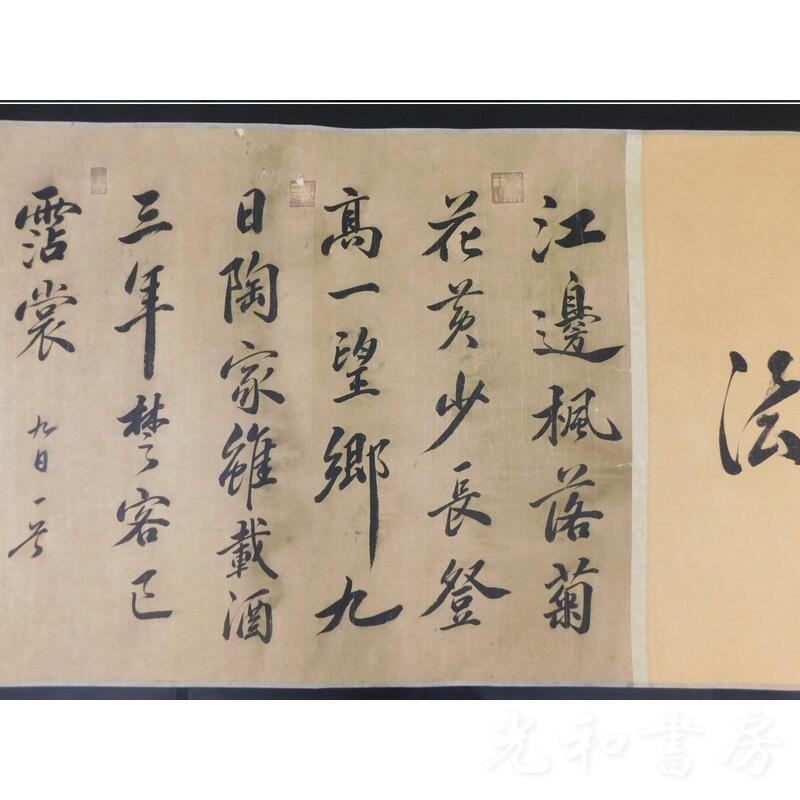 法
江邊楓落菊
花黃少長登
高一望鄉九
日陶家雖載酒
三年楚客已
霑裳
九日一首
光和書房